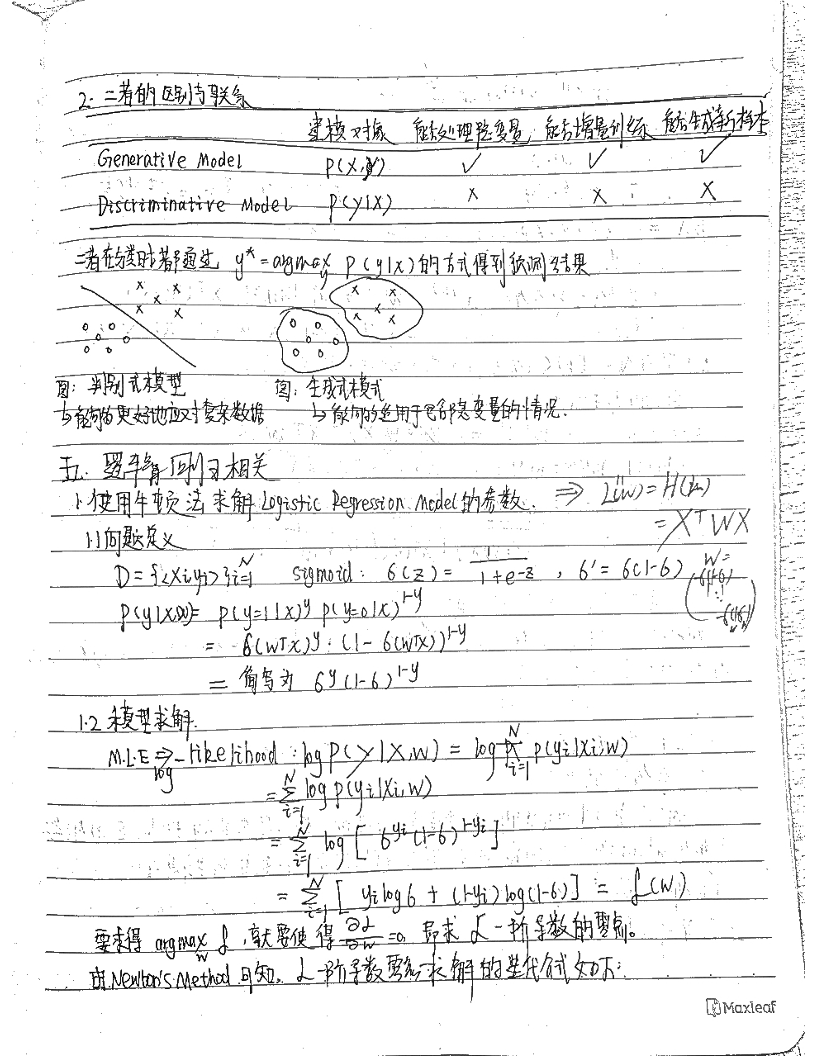 2. 二者的区别与联系
建模对象 能否处理隐变量 能否增量训练 能否生成新样本
Generative Model P(X,Y) ✓ ✓ ✓
Discriminative Model P(Y|X) × × ×
二者在分类时都通过 y* = argmax_y P(y|x) 的方式得到预测结果
图: 判别式模型 图: 生成式模式
↳能够更好地应对复杂数据 ↳能够适用于包含隐变量的情况.
五. 逻辑回归相关
1. 使用牛顿法求解 Logistic Regression Model 的参数. ⇒ L''(w) = H(w)
= X^T W X
1.1 问题定义 W =
D = {<xi, yi>}_{i=1}^N sigmoid: σ(z) = 1/(1+e^-z) , σ' = σ(1-σ)
P(y|x,w) = P(y=1|x)^y P(y=0|x)^{1-y}
= σ(w^T x)^y · (1 - σ(w^T x))^{1-y}
= 简写为 σ^y (1-σ)^{1-y}
1.2 模型求解.
M.L.E ⇒ log-likelihood : log P(Y|X,w) = log ∏_{i=1}^N p(yi|xi,w)
= Σ_{i=1}^N log p(yi|xi,w)
= Σ_{i=1}^N log [ σ^{yi} (1-σ)^{1-yi} ]
= Σ_{i=1}^N [ yi log σ + (1-yi) log(1-σ) ] = L(w)
要求得 argmax_w L , 就要使得 ∂L/∂w = 0, 即求 L 一阶导数的零点。
由 Newton's Method 可知, L 一阶导数零点求解的迭代公式如下:
Maxleaf